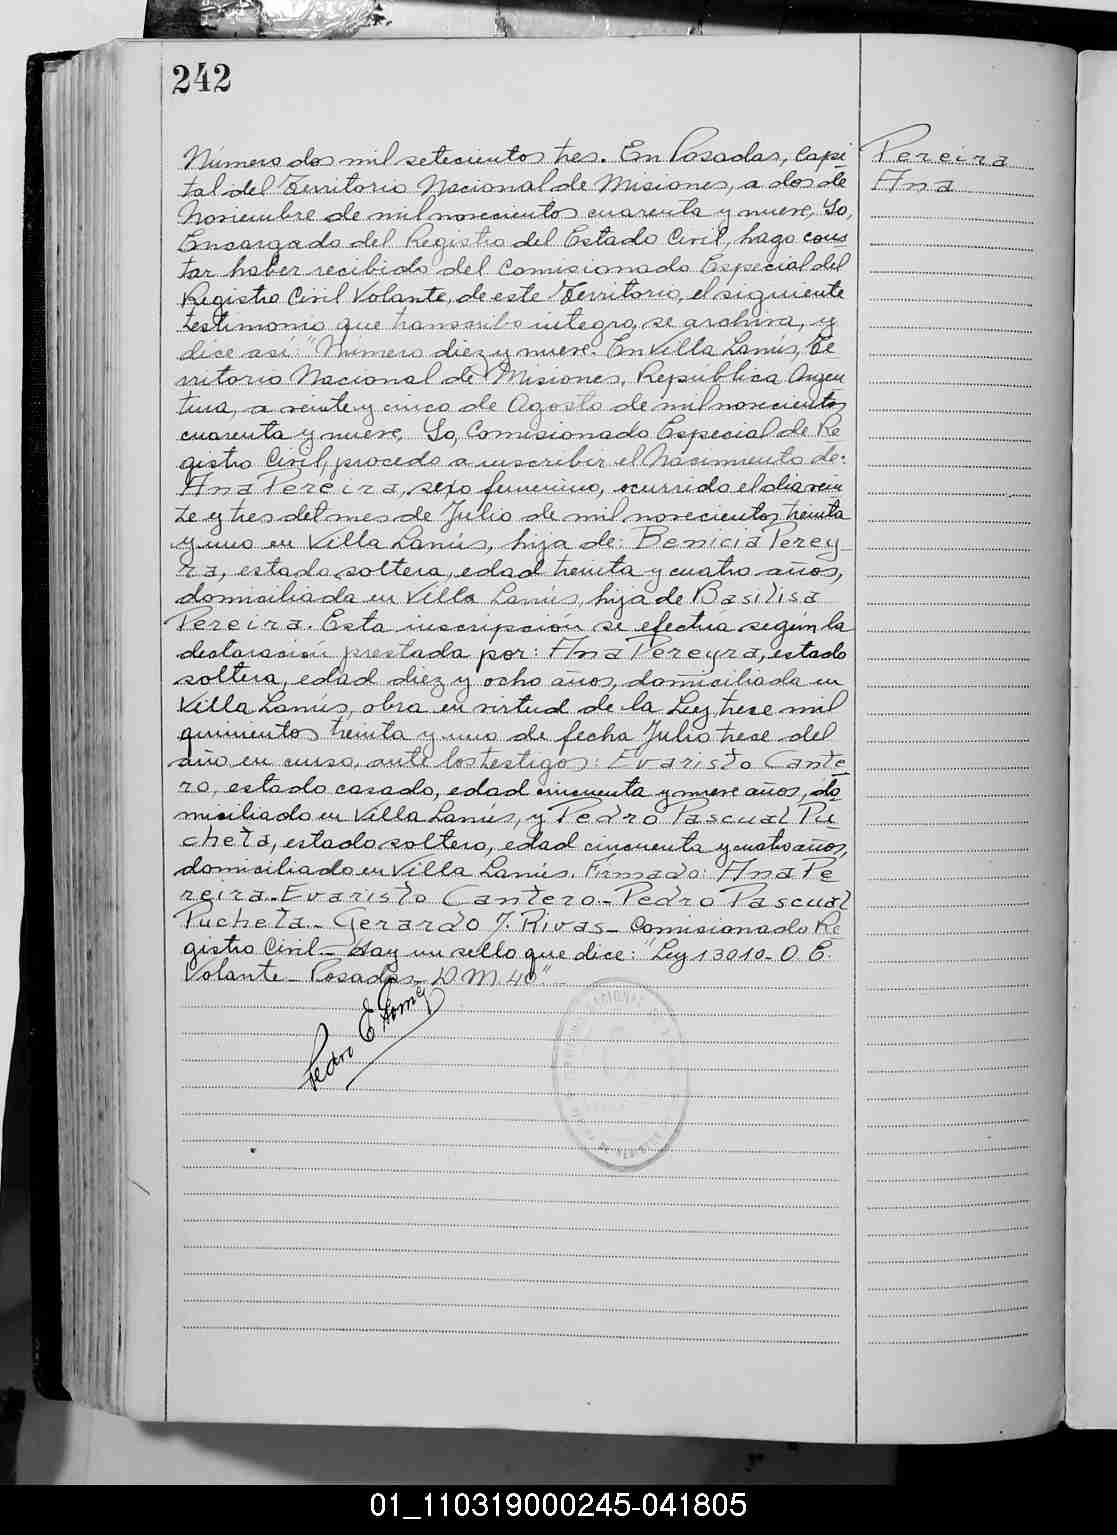 242
Pereira
Ana
Número dos mil setecientos tres. En Posadas, Capi-
tal del Territorio Nacional de Misiones, a dos de
Noviembre de mil novecientos cuarenta y nueve, Yo,
Encargado del Registro del Estado Civil, hago cons-
tar haber recibido del Comisionado Especial del
Registro Civil Volante, de este Territorio, el siguiente
testimonio que transcribo integro, se archiva, y
dice asi: "Número diez y nueve. En Villa Lanús, Te
rritorio Nacional de Misiones, República Argen
tina, a veinte y cinco de Agosto de mil novecientos
cuarenta y nueve, Yo, Comisionado Especial de Re
gistro Civil, procedo a inscribir el Nacimiento de:
Ana Pereira, sexo femenino, ocurrido el dia vein
te y tres del mes de Julio de mil novecientos treinta
y uno en Villa Lanús, hija de: Benicia Perey-
ra, estado soltera, edad treinta y cuatro años,
domiciliada en Villa Lanús, hija de Basilisa
Pereira. Esta inscripción se efectúa según la
declaración prestada por: Ana Pereyra, estado
soltera, edad diez y ocho años, domiciliada en
Villa Lanús, obra en virtud de la Ley trece mil
quinientos treinta y uno de fecha Julio trece del
año en curso, ante los testigos: Evaristo Cante
ro, estado casado, edad cincuenta y nueve años, do
miciliado en Villa Lanús, y Pedro Pascual Pu
cheta, estado soltero, edad cincuenta y cuatro años,
domiciliado en Villa Lanús. Firmado: Ana Pe
reira.- Evaristo Cantero.- Pedro Pascual
Pucheta.- Gerardo J. Rivas.- Comisionado Re
gistro Civil.- Hay un sello que dice: "Ley 13010- O. E.
Volante - Posadas - D. M. 40".-
Pedro E.
01_110319000245-041805